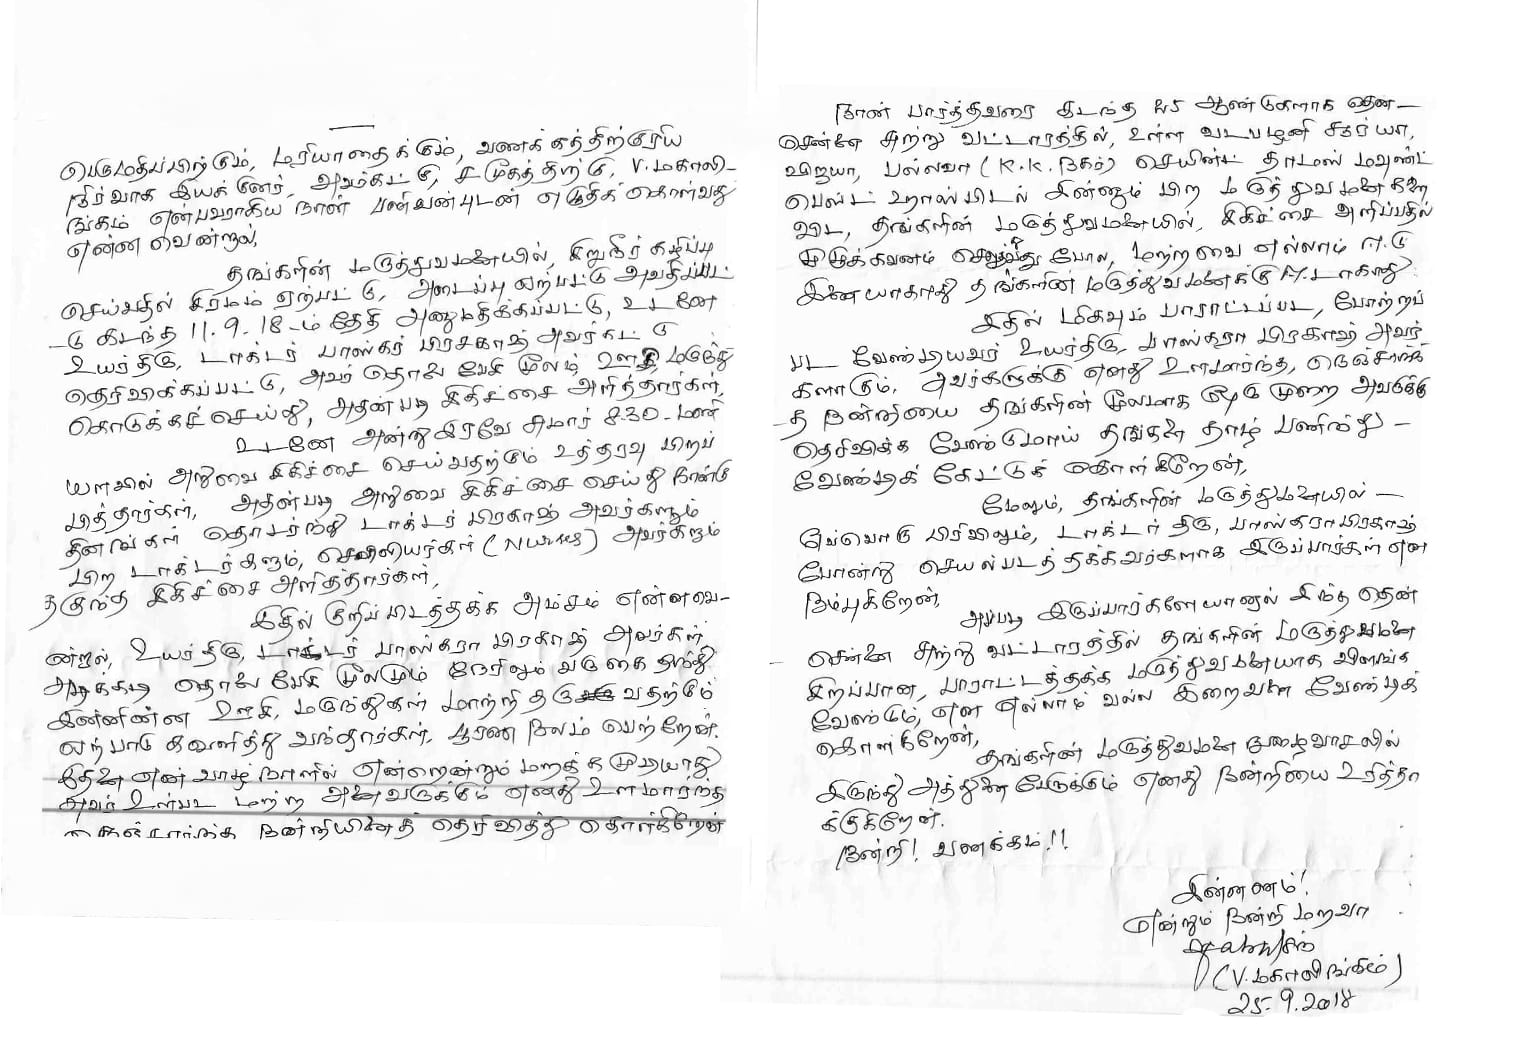 பெருமதிப்பிற்கும், மரியாதைக்கும், வணக்கத்திற்குரிய
நிர்வாக இயக்குனர், அவர்கட்கு, சமூகத்திற்கு, V. மகாலி-
ங்கம் என்பவராகிய நான் பணிவன்புடன் எழுதிக் கொள்வது
என்ன வென்றால்,
தங்களின் மருத்துவமனையில், சிறுநீர் கழிப்பு
செய்வதில் சிரமம் ஏற்பட்டு, அடைப்பு ஏற்பட்டு அவதிப்பட்
-டு கடந்த 11.9.18-ம் தேதி அனுமதிக்கப்பட்டு, உடனே
உயர்திரு, டாக்டர் பாஸ்கர் பிரகாஷ் அவர்கட்கு
தெரிவிக்கப்பட்டு, அவர் தொலை பேசி மூலம் ஊசி, மருந்து
கொடுக்கச் செய்து, அதன்படி சிகிச்சை அளித்தார்கள்.
உடனே அன்று இரவே சுமார் 8.30-மணி
யளவில் அறுவை சிகிச்சை செய்வதற்கும் உத்தரவு பிறப்
பித்தார்கள், அதன்படி அறுவை சிகிச்சை செய்து நான்கு
தினங்கள் தொடர்ந்து டாக்டர் பிரகாஷ் அவர்களும்
பிற டாக்டர்களும், செவிலியர்கள் (Nurses) அவர்களும்
தகுந்த சிகிச்சை அளித்தார்கள்,
இதில் குறிப்பிடத்தக்க அம்சம் என்னவெ-
ன்றால், உயர்திரு, டாக்டர் பாஸ்கரா பிரகாஷ் அவர்கள்
அடிக்கடி தொலை பேசி மூலமும் நேரிலும் வருகை தந்து
இன்னின்ன ஊசி, மருந்துகள் மாற்றி தருவதற்கும்
ஏற்பாடு கவனித்து வந்தார்கள். பூரண நலம் பெற்றேன்.
இதனை என் வாழ்நாளில் என்றென்றும் மறக்க முடியாது
அவர் உள்பட மற்ற அனைவருக்கும் எனது உளமார்ந்த
நன்றியினைத் தெரிவித்து கொள்கிறேன்
நான் பார்த்தவரை கடந்த 25 ஆண்டுகளாக தென்-
சென்னை சுற்று வட்டாரத்தில், உள்ள வடபழனி சூர்யா,
விஜயா, பல்லவா (K.K. நகர்) செயின்ட் தாமஸ் மவுண்ட்
பெல்ட் ஹாஸ்பிடல் இன்னும் பிற மருத்துவமனைகளை
விட, தங்களின் மருத்துவமனையில், சிகிச்சை அளிப்பதில்
முழுக்கவனம் செலுத்துவது போல, மற்றவை எல்லாம் ஈடு
இணையாகாது தங்களின் மருத்துவமனைக்கு ஈடாகாது.
இதில் மிகவும் பாராட்டப்பட, போற்றப்
பட வேண்டியவர் உயர்திரு, பாஸ்கரா பிரகாஷ் அவர்
களாகும். அவர்களுக்கு எனது உளமார்ந்த, நெஞ்சார்ந்
-த நன்றியை தங்களின் மூலமாக ஒரு முறை அவருக்கு
தெரிவிக்க வேண்டுமாய் தங்களை தாழ் பணிந்து -
வேண்டிக் கேட்டுக் கொள்கிறேன்,
மேலும், தங்களின் மருத்துமனையில் -
ஒவ்வொரு பிரிவிலும், டாக்டர் திரு, பாஸ்கராபிரகாஷ்
போன்று செயல்படத் தக்கவர்களாக இருப்பார்கள் என
நம்புகிறேன்,
அப்படி இருப்பார்களேயானால் இந்த தென்
- சென்னை சுற்று வட்டாரத்தில் தங்களின் மருத்துவமனை
சிறப்பான, பாராட்டத்தக்க மருத்துவமனையாக விளங்க
வேண்டும், என எல்லாம் வல்ல இறைவனை வேண்டிக்
கொள்கிறேன்,
தங்களின் மருத்துவமனை நுழைவாசலில்
இருந்து அத்துனை பேருக்கும் எனது நன்றியை உரித்தா
க்குகிறேன்.
நன்றி! வணக்கம்!!
இன்னணம்!
என்றும் நன்றி மறவா
(V. மகாலிங்கம்)
25.9.2018